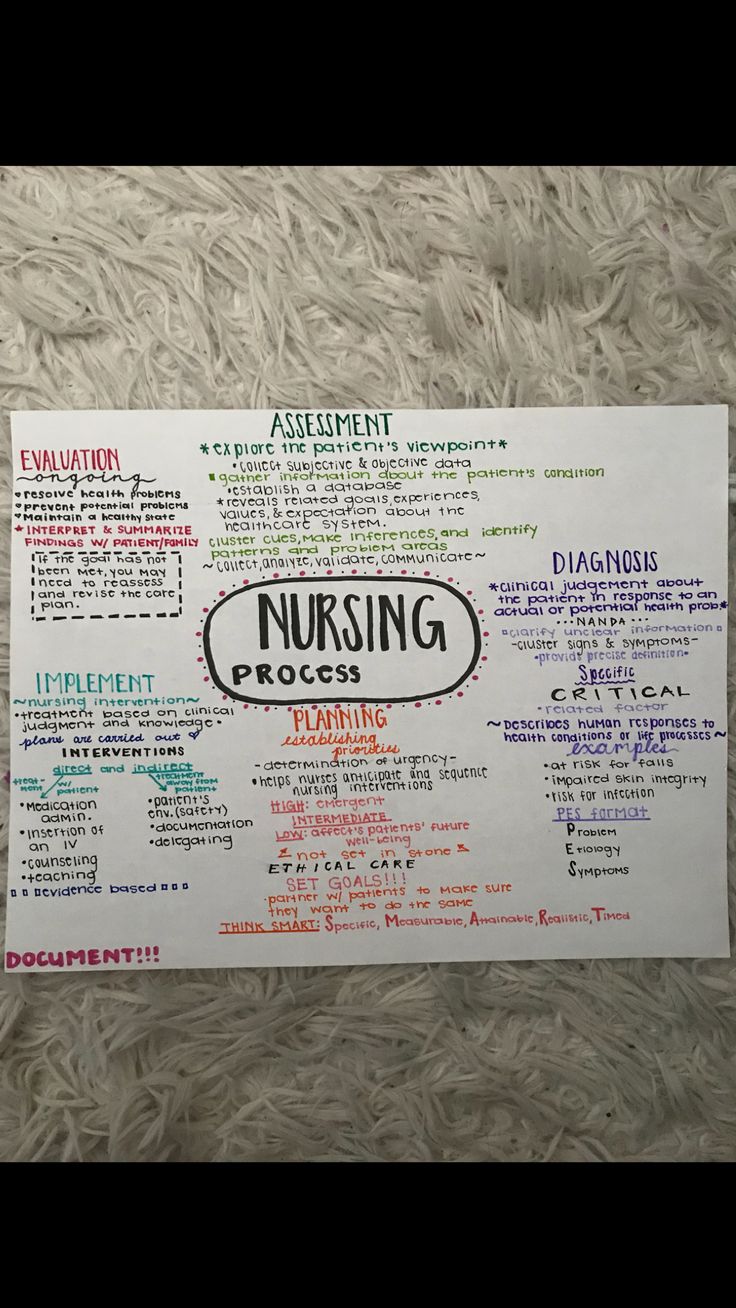 ASSESSMENT
*explore the patient's viewpoint*
•collect subjective & objective data
▪gather information about the patient's condition
•establish a database
*reveals related goals, experiences,
values, & expectation about the
healthcare system.
cluster cues, make inferences, and identify
patterns and problem areas
~collect, analyze, validate, communicate~
EVALUATION
~ongoing
♥resolve health problems
♥prevent potential problems
♥Maintain a healthy state
*INTERPRET & SUMMARIZE
FINDINGS W/ PATIENT/FAMILY
If the goal has not
been met, you may
need to reassess
and revise the care
plan.
NURSING
PROCESS
DIAGNOSIS
*clinical judgement about
the patient in response to an
actual or potential health prob*
•••NANDA•••
▫clarify unclear information▫
-cluster signs & symptoms-
•provide precise definition•
Specific
CRITICAL
•related factor
~Describes human responses to
health conditions or life processes~
examples
•at risk for falls
•impaired skin integrity
•risk for infection
PES format
Problem
Etiology
Symptoms
IMPLEMENT
~nursing intervention~
•treatment based on clinical
judgment and knowledge•
plans are carried out ♡
INTERVENTIONS
direct and indirect
treatment w/ patient
treatment away from patient
•Medication
admin.
•insertion of
an IV
•counseling
•teaching
•patient's
env. (safety)
•documentation
•delegating
▫▫▫evidence based▫▫▫
PLANNING
establishing
priorities
-determination of urgency-
•helps nurses anticipate and sequence
nursing interventions
HIGH: emergent
INTERMEDIATE
LOW: affect's patients' future
well-being
not set in stone
ETHICAL CARE
SET GOALS!!!
•partner w/ patients to make sure
they want to do the same
THINK SMART: Specific, Measurable, Attainable, Realistic, Timed
DOCUMENT!!!